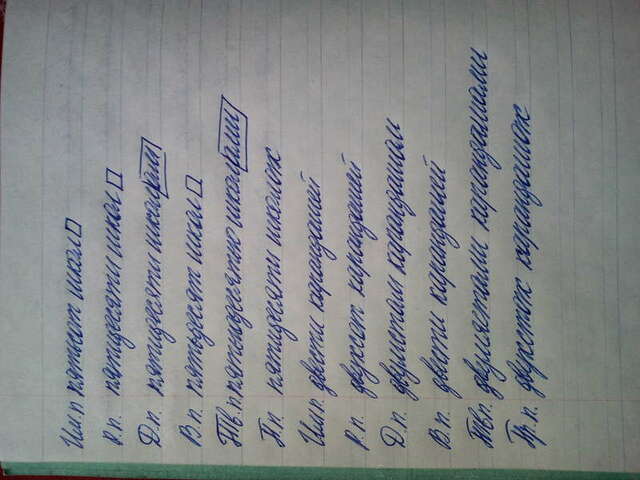 Им.п. пятьдесят школ
Р.п. пятидесяти школ
Д.п. пятидесяти школам
В.п. пятьдесят школ
Тв.п. пятьюдесятью школами
П.п. пятидесяти школах
Им.п. двести карандашей
Р.п. двухсот карандашей
Д.п. двумстам карандашам
В.п. двести карандашей
Тв.п. двумястами карандашами
Пр.п. двухстах карандашах